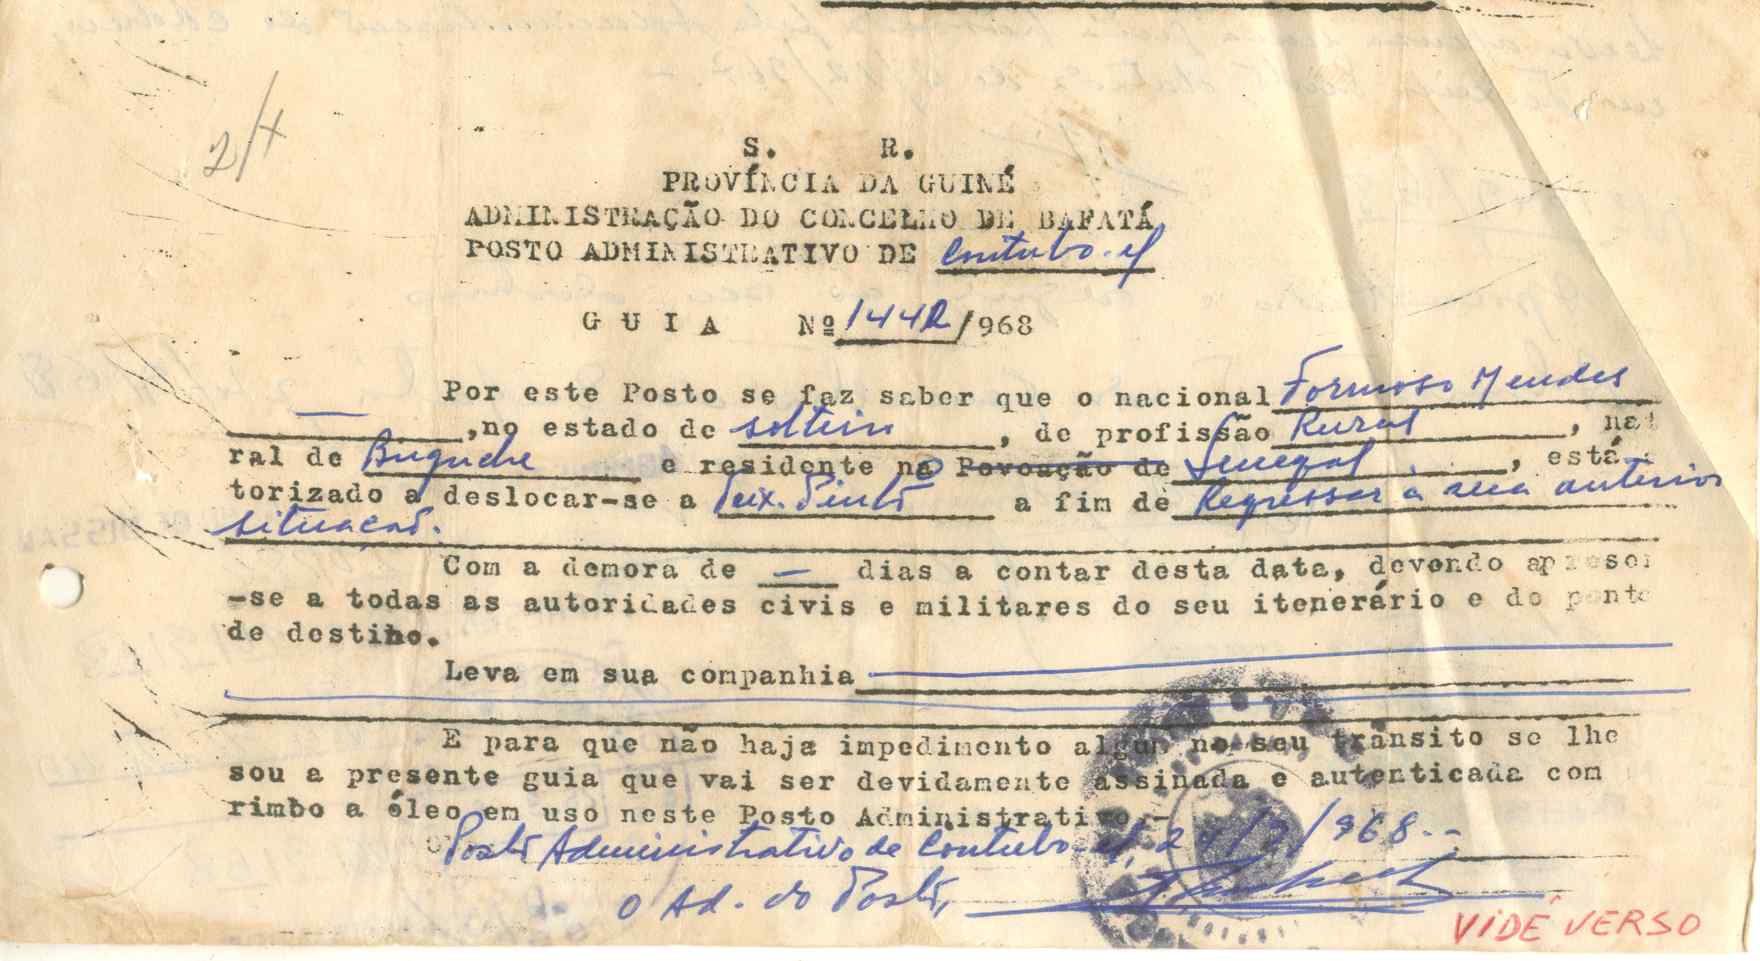 2/4
S. R.
PROVÍNCIA DA GUINÉ
ADMINISTRAÇÃO DO CONCELHO DE BAFATÁ
POSTO ADMINISTRATIVO DE Contubo-el
GUIA Nº 1442/968
Por este Posto se faz saber que o nacional Formoso Mendes
— ,no estado de solteiro , de profissão Rural , nat
ral de e residente no Povoação de Senegal , está
torizado a deslocar-se a Teix. Pinto a fim de Regressar a sua anterior
situação.
Com a demora de — dias a contar desta data, devendo apresen
-se a todas as autoridades civis e militares do seu itenerário e do ponto
de destino.
Leva em sua companhia
E para que não haja impedimento algum no seu trânsito se lhe
sou a presente guia que vai ser devidamente assinada e autenticada com
rimbo a óleo em uso neste Posto Administrativo.-
Posto Administrativo de Contubo-el, 24/ /968.-
O Ad. do Posto,
VIDÉ VERSO